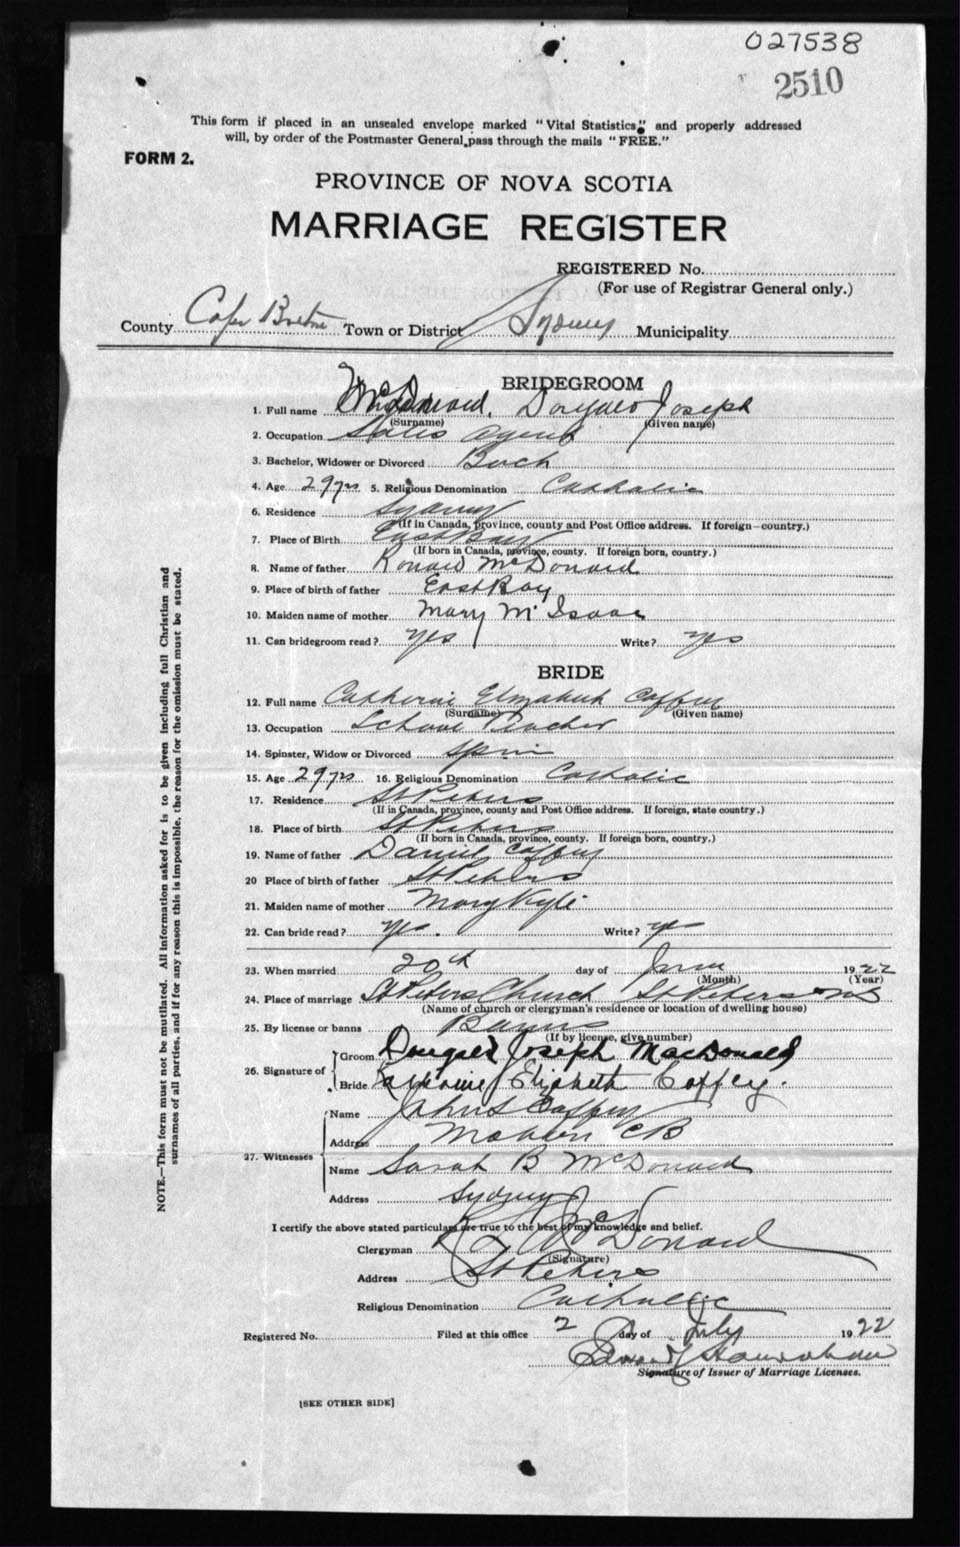 027538
2510
This form if placed in an unsealed envelope marked "Vital Statistics," and properly addressed
will, by order of the Postmaster General, pass through the mails "FREE."
FORM 2.
PROVINCE OF NOVA SCOTIA
MARRIAGE REGISTER
REGISTERED No.
(For use of Registrar General only.)
County Cape Breton Town or District Sydney Municipality
BRIDEGROOM
1. Full name McDonald, Dougald Joseph
(Surname) (Given name)
2. Occupation Sales agent
3. Bachelor, Widower or Divorced Bach
4. Age 29 yrs 5. Religious Denomination Catholic
6. Residence Sydney
(If in Canada, province, county and Post Office address. If foreign—country.)
7. Place of Birth East Bay
(If born in Canada, province, county. If foreign born, country.)
8. Name of father Ronald McDonald
9. Place of birth of father East Bay
10. Maiden name of mother Mary McIsaac
11. Can bridegroom read? yes Write? yes
BRIDE
12. Full name Catherine Elizabeth Coffey
(Surname) (Given name)
13. Occupation School Teacher
14. Spinster, Widow or Divorced Spin
15. Age 29 yrs 16. Religious Denomination Catholic
17. Residence St Peters
(If in Canada, province, county and Post Office address. If foreign, state country.)
18. Place of birth St Peters
(If born in Canada, province, county. If foreign born, country.)
19. Name of father Daniel Coffey
20 Place of birth of father St Peters
21. Maiden name of mother Mary Kyte
22. Can bride read? yes. Write? yes
23. When married 20th day of June 1922
(Month) (Year)
24. Place of marriage St Peters Church St Peters
(Name of church or clergyman's residence or location of dwelling house)
25. By license or banns Banns
(If by license, give number)
26. Signature of
Groom Dougald Joseph MacDonald
Bride Katherine Elizabeth Coffey.
27. Witnesses
Name John Coffey
Address CB
Name Sarah B McDonald
Address Sydney
I certify the above stated particulars are true to the best of my knowledge and belief.
Clergyman McDonald
(Signature)
Address St Peters
Religious Denomination Catholic
Registered No. Filed at this office 2 day of July 1922
Signature of Issuer of Marriage Licenses.
[SEE OTHER SIDE]
NOTE.—This form must not be mutilated. All information asked for is to be given including full Christian and
surnames of all parties, and if for any reason this is impossible, the reason for the omission must be stated.